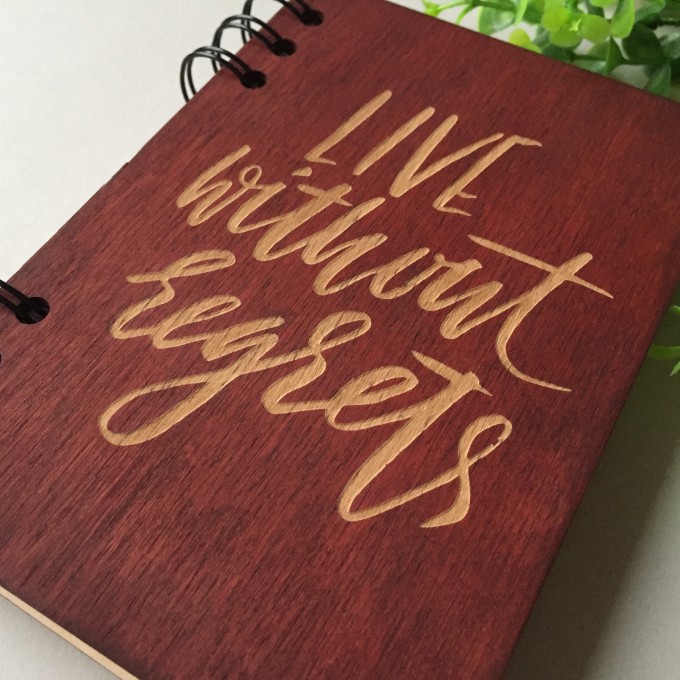 LIVE
without
regrets